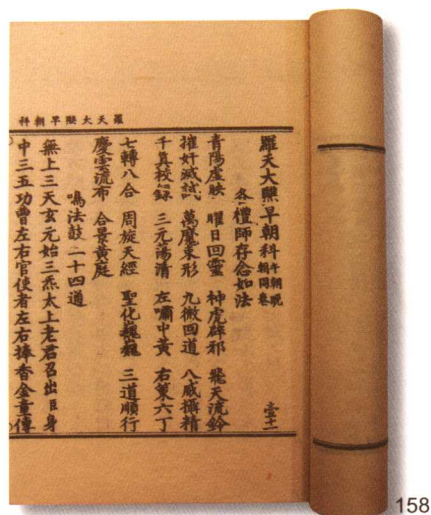 羅天大醮早朝科
羅天大醮早朝科 午朝晚朝同卷
各禮師存念如法
青陽虛映 曜日回靈 神虎辟邪 飛天流鈴
摧奸滅試 萬魔束形 九微回道 八威攝精
千真校錄 三元蕩清 左嘯中黃 右策六丁
七轉八合 周旋天經 聖化巍巍 三道順行
慶雲流布 合景黃庭
鳴法鼓二十四道
無上三天玄元始三炁太上老君召出臣身
中三五功曹左右官使者左右捧香金童傳
158